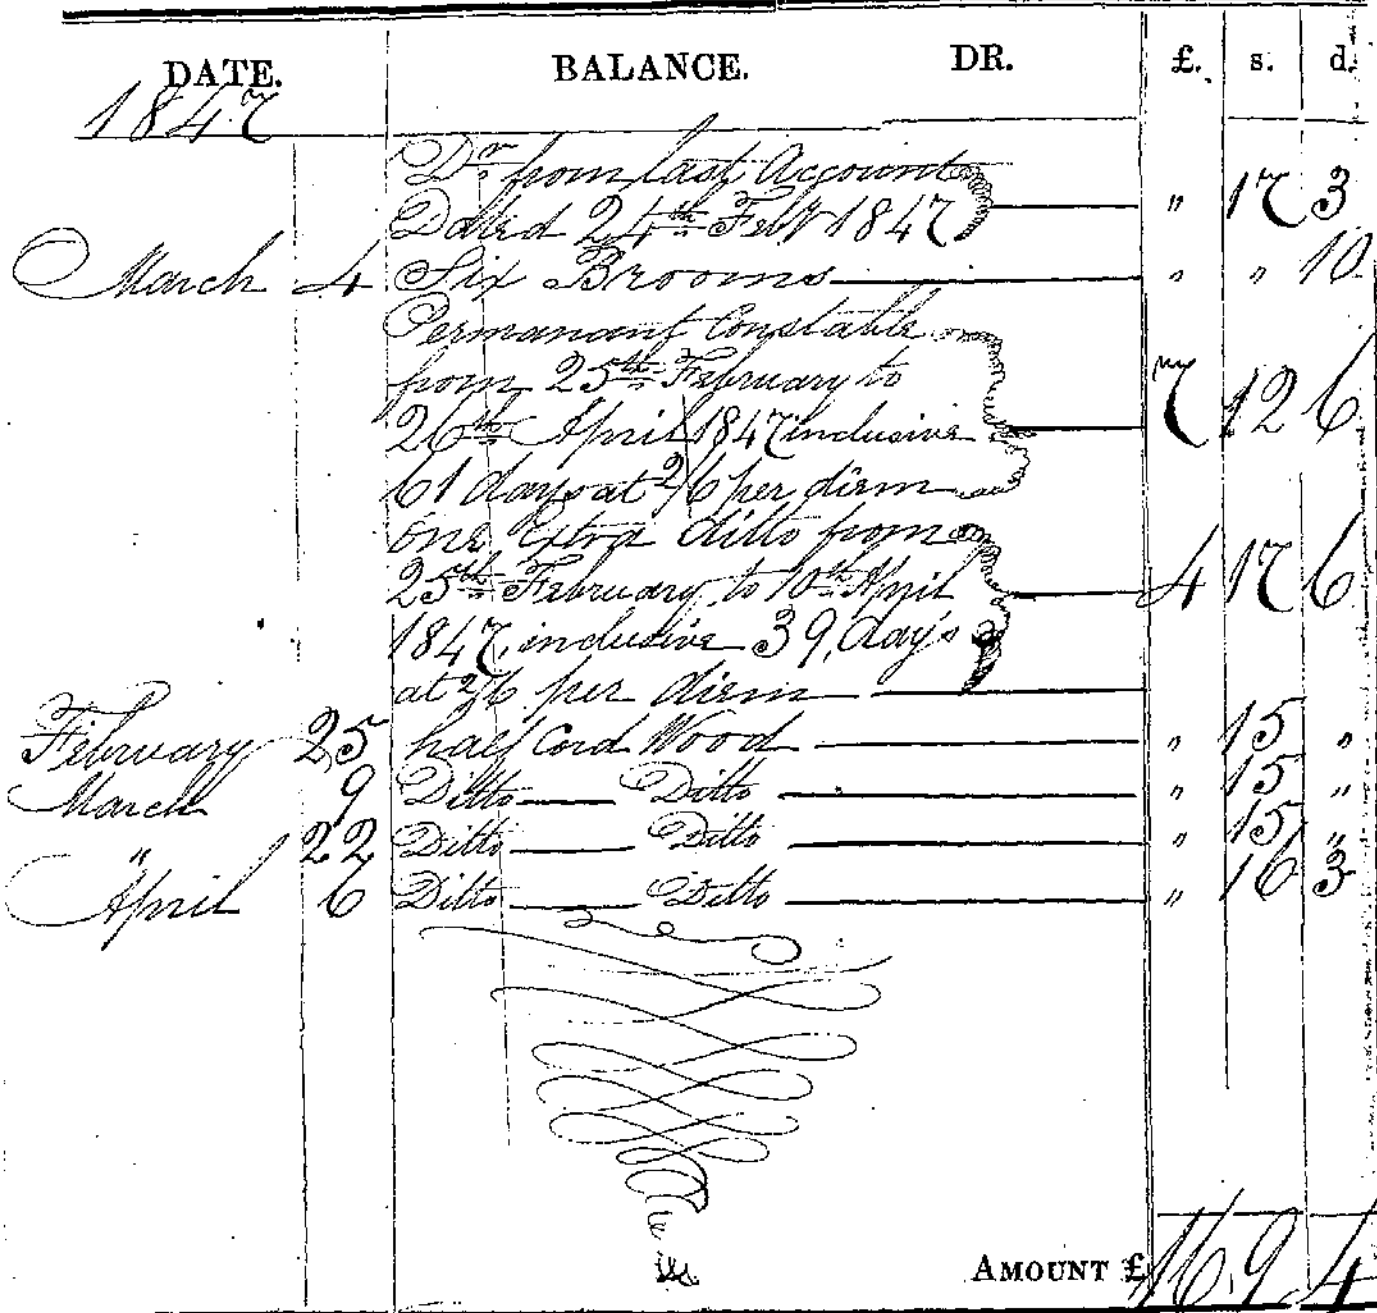 DATE. BALANCE. DR. £. s. d.
1847
Dr. from last Account
Dated 24th Feby 1847 " 17 3
March 4 Six Brooms " " 10
Permanant Constable
from 25th February to
26th April 1847 inclusive 7 12 6
61 days at 2/6 per dirm
one Extra ditto from
25th February to 10th April 4 17 6
1847, inclusive 39, day's
at 2/6 per dirm
February 25 half Cord Wood " 15 "
March 9 Ditto Ditto " 15 "
" 22 Ditto Ditto " 15 "
April 6 Ditto Ditto " 16 3
AMOUNT £ 16 9 4